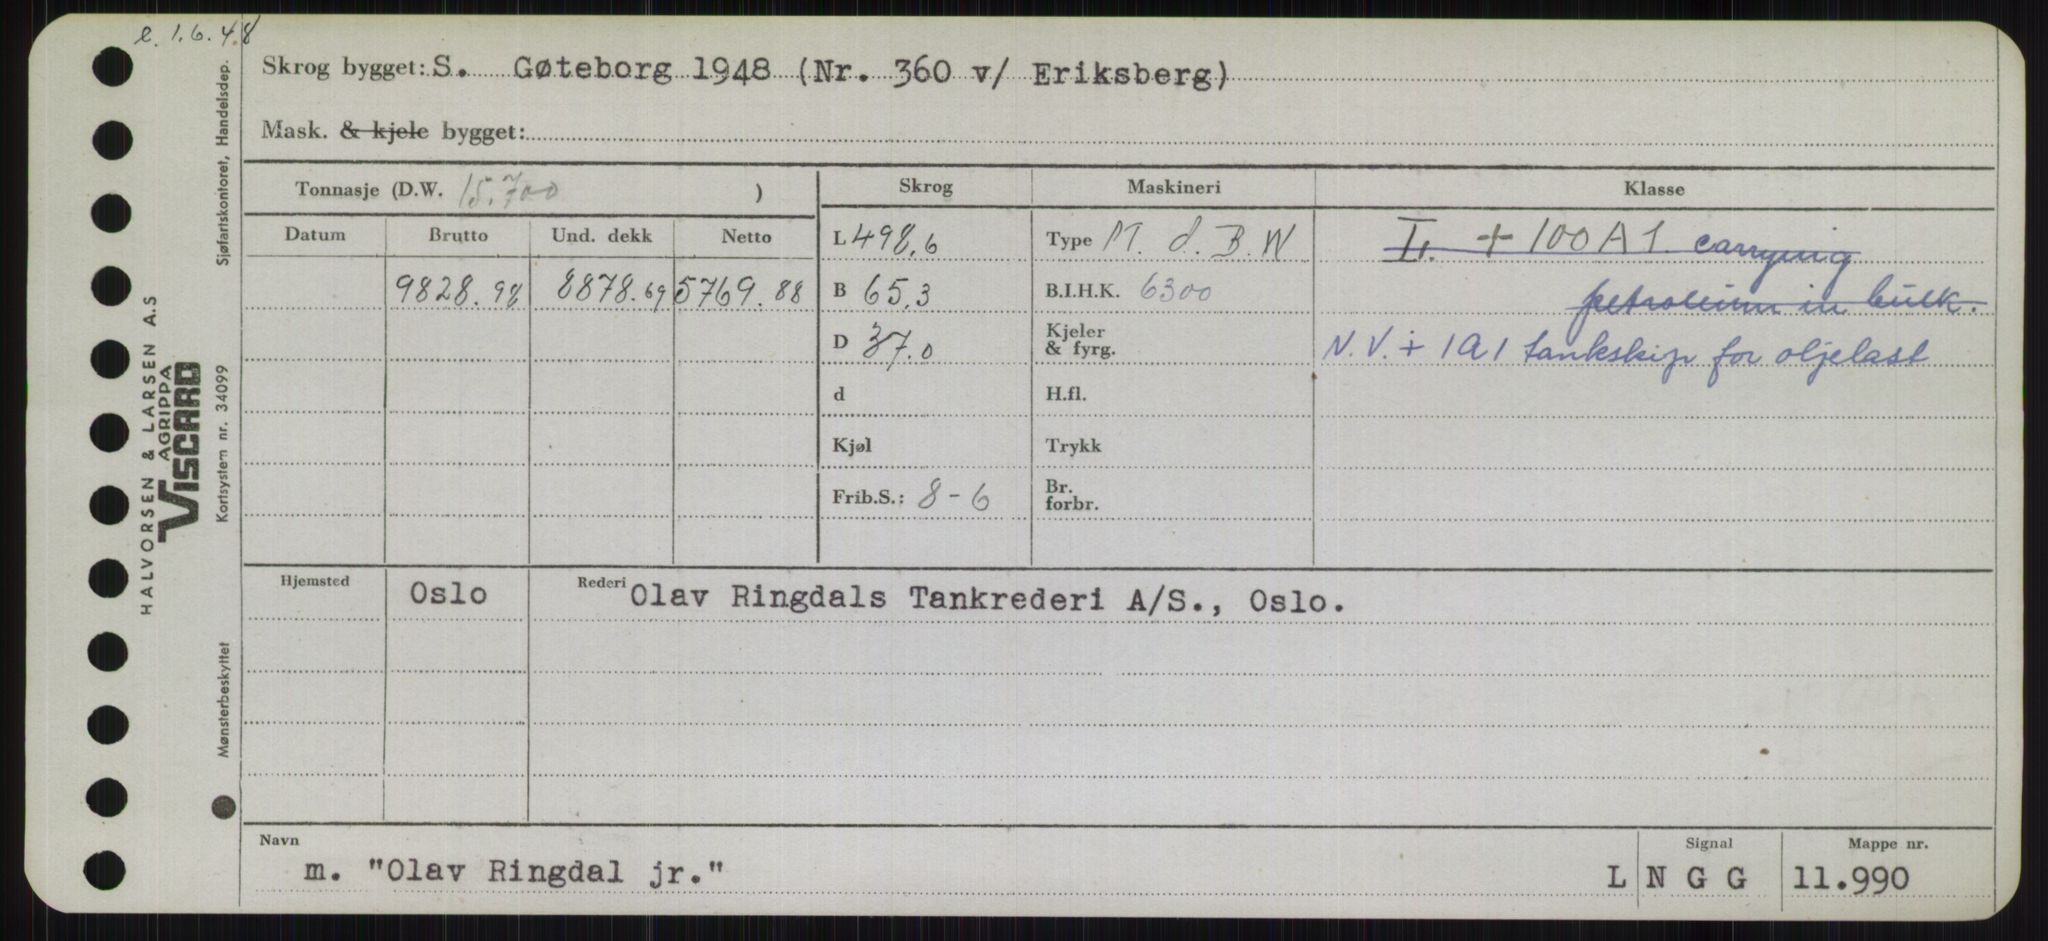 e. 1.6.48
Skrog bygget: S. Gøteborg 1948 (Nr. 360 v/ Eriksberg)
Mask. & kjele bygget:
Tonnasje (D.W. 15.700 )
Skrog Maskineri Klasse
Datum Brutto Und. dekk Netto
9828.98 8878.69 5769.88
L 498,6
B 65,3
D 37.0
d
Kjøl
Frib.S.: 8-6
Type M. d. B.W
B.I.H.K. 6300
Kjeler
& fyrg.
H.fl.
Trykk
Br.
forbr.
L. + 100 A 1. carrying
petroleum in bulk.
N.V. + 1A1 tankskip for oljelast
Hjemsted Oslo Rederi Olav Ringdals Tankrederi A/S., Oslo.
Navn Signal Mappe nr.
m. "Olav Ringdal jr." L N G G 11.990
Sjøfartskontoret, Handelsdep.
HALVORSEN & LARSEN A.S
AGRIPPA
VISCARD
Kortsystem nr. 34099
Mønsterbeskyttet